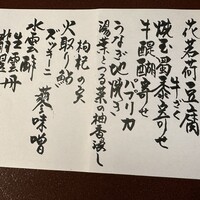 花茗荷豆腐
牛ざく
焼玉蜀黍寄せ
牛醍醐寄せ
パプリカ
うなぎ地焼き
湯葉とつる菜の柚香浸し
枸杞の実
火取り鮎
ズッキーニ
蓼味噌
水雲酢
生雲丹